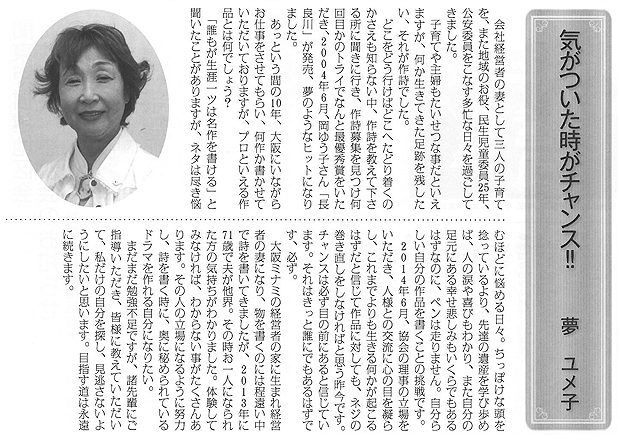 気がついた時がチャンス!!
夢 ユメ子
会社経営者の妻として三人の子育て
を、また地域のお役、民生児童委員25年、
公安委員をこなす多忙な日々を過ごして
きました。
子育てや主婦もたいせつな事だといえ
ますが、何か生きてきた足跡を残した
い、それが作詩でした。
どこをどう行けばどこへたどり着くの
かさえも知らない中、作詩を教えて下さ
る所に聞きに行き、作詩募集を見つけ何
回目かのトライでなんと最優秀賞をいた
だき、2004年6月、岡ゆう子さん「長
良川」が発売、夢のようなヒットになり
ました。
あっという間の10年、大阪にいながら
お仕事をさせてもらい、何作か書かせて
いただいておりますが、プロといえる作
品とは何でしょう?
「誰もが生涯一ツは名作を書ける」と
聞いたことがありますが、ネタは尽き悩
むほどに悩める日々。ちっぽけな頭を
捻っているより、先達の遺産を学び歩め
ば、人の涙や喜びもわかり、また自分の
足元にある幸せ悲しみもいくらでもある
はずなのに、ペンは走りません。自分ら
しい自分の作品を書くことの挑戦です。
2014年6月、協会の理事の立場を
いただき、人様との交流に心の目を凝ら
し、これまでよりも生きる何かが起こる
はずだと信じて作品に対しても、ネジの
巻き直しをしなければと思う昨今です。
チャンスは必ず目の前にあると信じてい
ます。それはきっと誰にでもあるはずで
す、必ず。
大阪ミナミの経営者の家に生まれ経営
者の妻になり、物を書くのには程遠い中
で詩を書いてきましたが、2013年に
71歳で夫が他界。その時お一人になられ
た方の気持ちがわかりました。体験して
みなければ、わからない事がたくさんあ
ります。その人の立場になるように努力
し、詩を書く時に、奥に秘められている
ドラマを作れる自分になりたい。
まだまだ勉強不足ですが、諸先輩にご
指導いただき、皆様に教えていただい
て、私だけの自分を探し、見逃さないよ
うにしたいと思います。目指す道は永遠
に続きます。